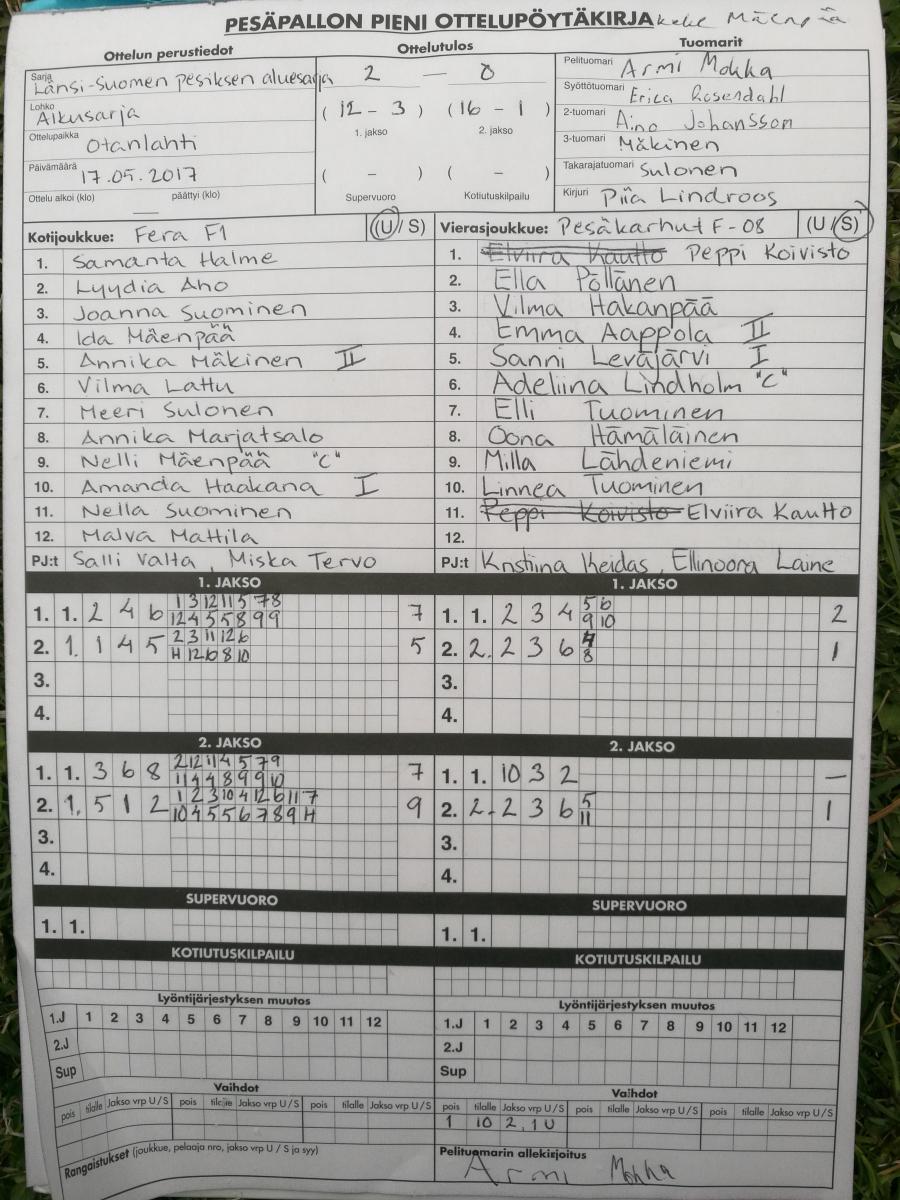 PESÄPALLON PIENI OTTELUPÖYTÄKIRJA Keke Mäenpää
Ottelun perustiedot Ottelutulos Tuomarit
Sarja Länsi-Suomen pesiksen aluesarja
2 — 0
Pelituomari Armi Mokka
Syöttötuomari Erica Rosendahl
Lohko Alkusarja
( 12 - 3 ) ( 16 - 1 )
1. jakso 2. jakso
2-tuomari Aino Johansson
Ottelupaikka Otanlahti
3-tuomari Mäkinen
Päivämäärä 17.05.2017
( - ) ( - )
Takarajatuomari Sulonen
Ottelu alkoi (klo) — päättyi (klo)
Supervuoro Kotiutuskilpailu
Kirjuri Piia Lindroos
Kotijoukkue: Fera F1 (U / S) Vierasjoukkue: Pesäkarhut F-08 (U / S)
1. Samanta Halme 1. Elviira Kautto Peppi Koivisto
2. Lyydia Aho 2. Ella Pöllänen
3. Joanna Suominen 3. Vilma Hakanpää
4. Ida Mäenpää 4. Emma Aappola II
5. Annika Mäkinen II 5. Sanni Leväjärvi I
6. Vilma Lattu 6. Adeliina Lindholm "C"
7. Meeri Sulonen 7. Elli Tuominen
8. Annika Marjatsalo 8. Oona Hämäläinen
9. Nelli Mäenpää "C" 9. Milla Lähdeniemi
10. Amanda Haakana I 10. Linnea Tuominen
11. Nella Suominen 11. Peppi Koivisto Elviira Kautto
12. Malva Mattila 12.
PJ:t Salli Valta, Miska Tervo PJ:t Kristiina Keidas, Ellinoora Laine
1. JAKSO 1. JAKSO
1. 1. 2 4 6 1 3 12 11 5 7 8 7 1. 1. 2 3 4 5 6 2
12 4 5 5 8 9 9 9 10
2. 1. 1 4 5 2 3 11 12 6 5 2. 2. 2 3 6 4 1
H 12 6 8 10 8
3. 3.
4. 4.
2. JAKSO 2. JAKSO
1. 1. 3 6 8 2 12 11 4 5 7 9 7 1. 1. 10 3 2 —
11 4 4 8 9 9 10
2. 1. 5 1 2 1 2 3 10 4 12 6 11 7 9 2. 2. 2 3 6 5 1
10 4 5 5 6 7 8 9 H 11
3. 3.
4. 4.
SUPERVUORO SUPERVUORO
1. 1. 1. 1.
KOTIUTUSKILPAILU KOTIUTUSKILPAILU
Lyöntijärjestyksen muutos Lyöntijärjestyksen muutos
1.J 1 2 3 4 5 6 7 8 9 10 11 12 1.J 1 2 3 4 5 6 7 8 9 10 11 12
2.J 2.J
Sup Sup
Vaihdot Vaihdot
pois tilalle Jakso vrp U / S pois tilalle Jakso vrp U / S pois tilalle Jakso vrp U / S pois tilalle Jakso vrp U / S pois tilalle Jakso vrp U / S pois tilalle Jakso vrp U / S
1 10 2, 1 U
Rangaistukset (joukkue, pelaaja nro, jakso vrp U / S ja syy) Pelituomarin allekirjoitus
Armi Mokka